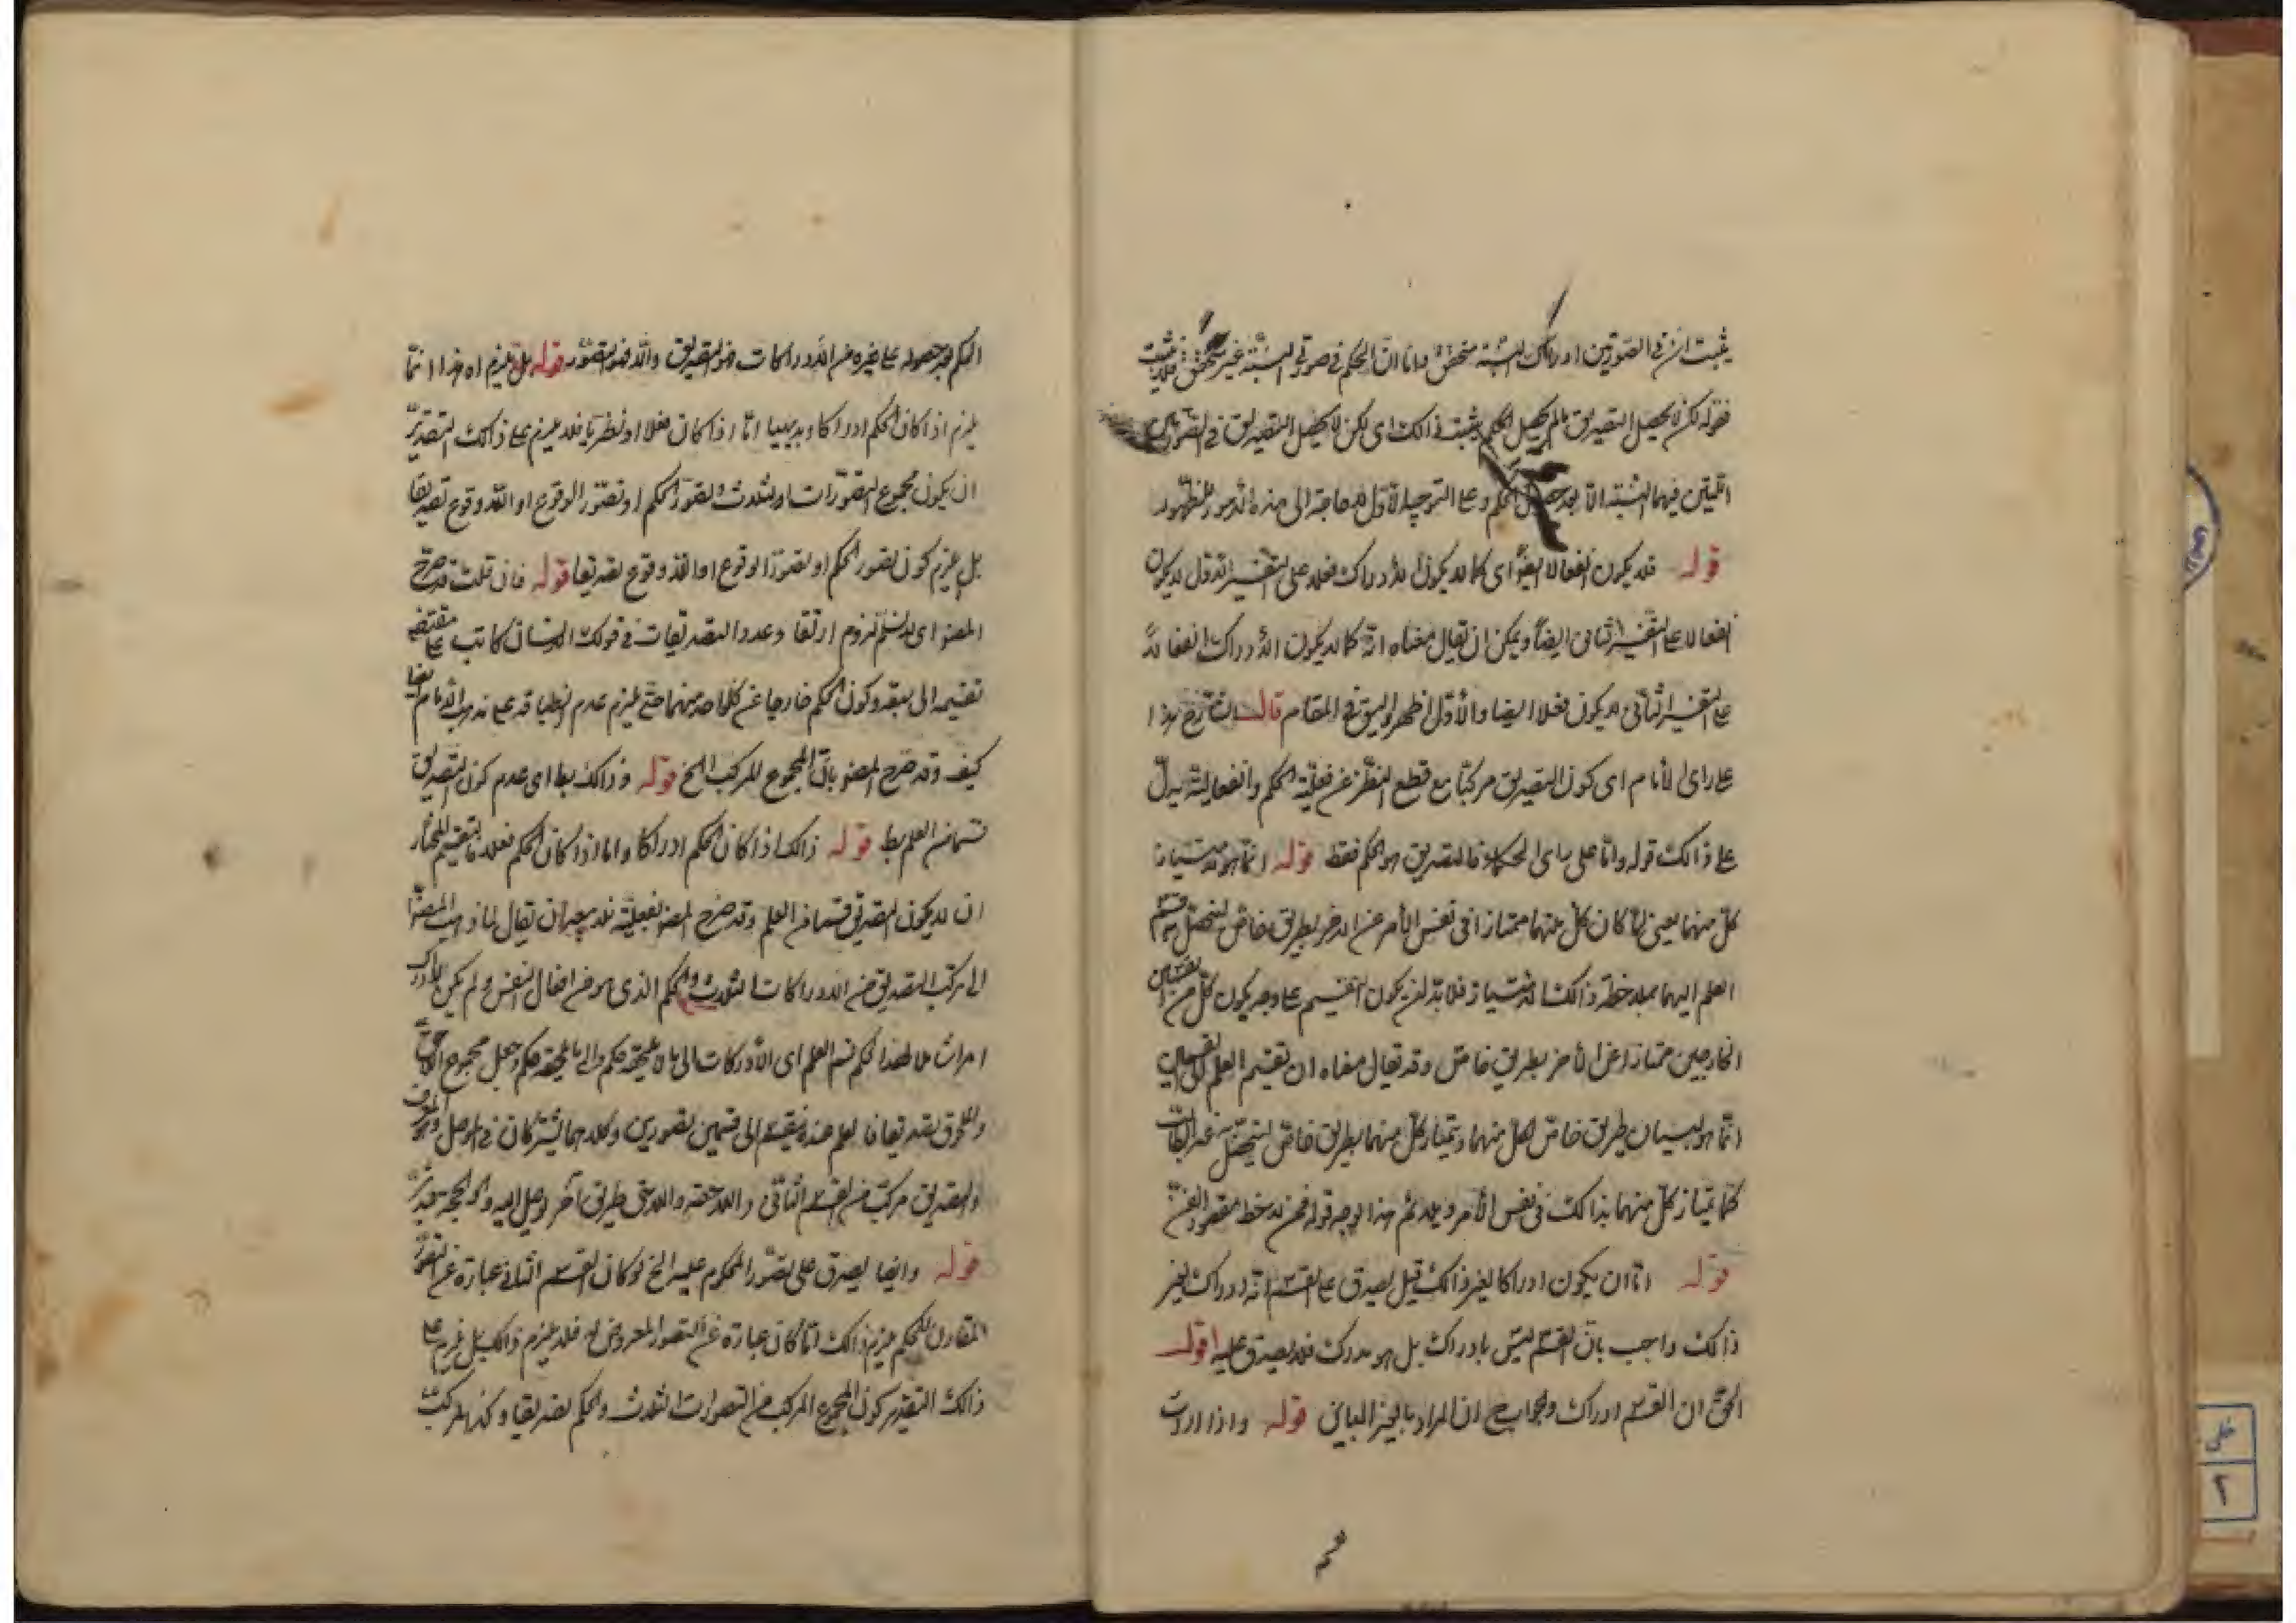 يثبت ان في الصورتين ادراك النسبة متحقق واما ان الحكم في صورتي النسبة غير متحقق فلا يثبت
فقوله لكن لا يحصل التصديق ما لم يحصل الحكم يثبت ذالك اى لكن لا يحصل التصديق في الصورتين
فيهما النسبة الا بعد حصول الحكم وعلى التوجيه الاول لا حاجة الى هذه الامور
قوله فلا يكون انفعالا ايضا اى كما لا يكون الادراك فعلا على التفسير الاول لا يكون
انفعالا على التفسير الثانى ايضا ويمكن ان يقال معناه انه كما لا يكون الادراك انفعالا
على التفسير الثانى لا يكون فعلا ايضا والأول اظهر واليق في المقام قال الشارح هذا
على راى الأمام اى كون التصديق مركبا مع قطع النظر عن فعلية الحكم وانفعاليته يدل
على ذالك قوله واما على راى الحكماء فالتصديق هو الحكم فقط قوله انما هو لامتياز
كل منهما يعنى لما كان كل منهما ممتازا في نفس الأمر عن الاخر بطريق خاص
العلم اليهما بملاحظة ذالك الامتياز فلا بد ان يكون التقسيم على وجه يكون كل من القسمين
الخارجين ممتازا عن الأخر بطريق خاص وقد يقال معناه ان تقسيم العلم الى القسمين
انما هو لبيان طريق خاص لكل منهما ويمتاز كل منهما بطريق خاص
كما يمتاز كل منهما بذالك في نفس الأمر ويلائم هذا الوجه قوله فمن لاحظ مقصود الفن
قوله اما ان يكون ادراكا لغير ذالك قيل يصدق على القسم انه ادراك لغير
ذالك واجيب بان القسم ليس بادراك بل هو مدرك فلا يصدق عليه اقول
الحق ان القسم ادراك والجواب ح ان المراد بالغير المباين قوله واذا اردت
الحكم بعد حصوله على غيره من الادراكات فهو التصديق والا فهو التصور قوله بل يلزم اه هذا انما
يلزم اذا كان الحكم ادراكا وبديهيا اما اذا كان فعلا او نظريا فلا يلزم على ذالك التقدير
ان يكون مجموع التصورات الثلاث وتصور الحكم او تصور الوقوع او اللاوقوع تصديقا
بل يلزم كون تصور الحكم او تصور الوقوع او اللاوقوع تصديقا قوله فان قلت قد صرح
المصنف اى لا نسلم لزوم ارتقاء عدد التصديقات في قولك الانسان كاتب على مقتضى
تقسيمه الى سبعة وكون الحكم خارجا عن كل واحد منهما حتى يلزم عدم انطباقه على مذهب الأمام ايضا
كيف وقد صرح المصنف بان المجموع المركب الخ قوله وذالك بط اى عدم كون التصديق
قسما من العلم بط قوله ذالك اذا كان الحكم ادراكا واما اذا كان الحكم فعلا فالتقسيم المختار
ان لا يكون التصديق قسما من العلم وقد صرح المصنف بفعليته فلا يبعد ان يقال لما ذهب المصنف
الى تركب التصديق من الادراكات الثلاث والحكم الذى هو من افعال النفس ولم يكن الادراك
امرا شاملا لهذا الحكم قسم العلم اى الأدراكات الى ما لا يلحقه حكم والى ما يلحقه حكم وجعل مجموع اللاحق
والملحوق تصديقا فالعلم عنده ينقسم الى قسمين تصورين وكلاهما يشتركان في الموصل وهو المعرف
والتصديق مركب من القسم الثانى واللاحق وللاحق طريق آخر يوصل اليه وهو الحجة
قوله وايضا يصدق على تصور المحكوم عليه الخ لو كان القسم الثانى عبارة عن التصور
المقارن للحكم يلزم ذالك اما كان عبارة عن التصور المعروض له فلا يلزم ذالك بل يلزم على
ذالك التقدير كون المجموع المركب من التصورات الثلاث والحكم تصديقا وكذا المركب